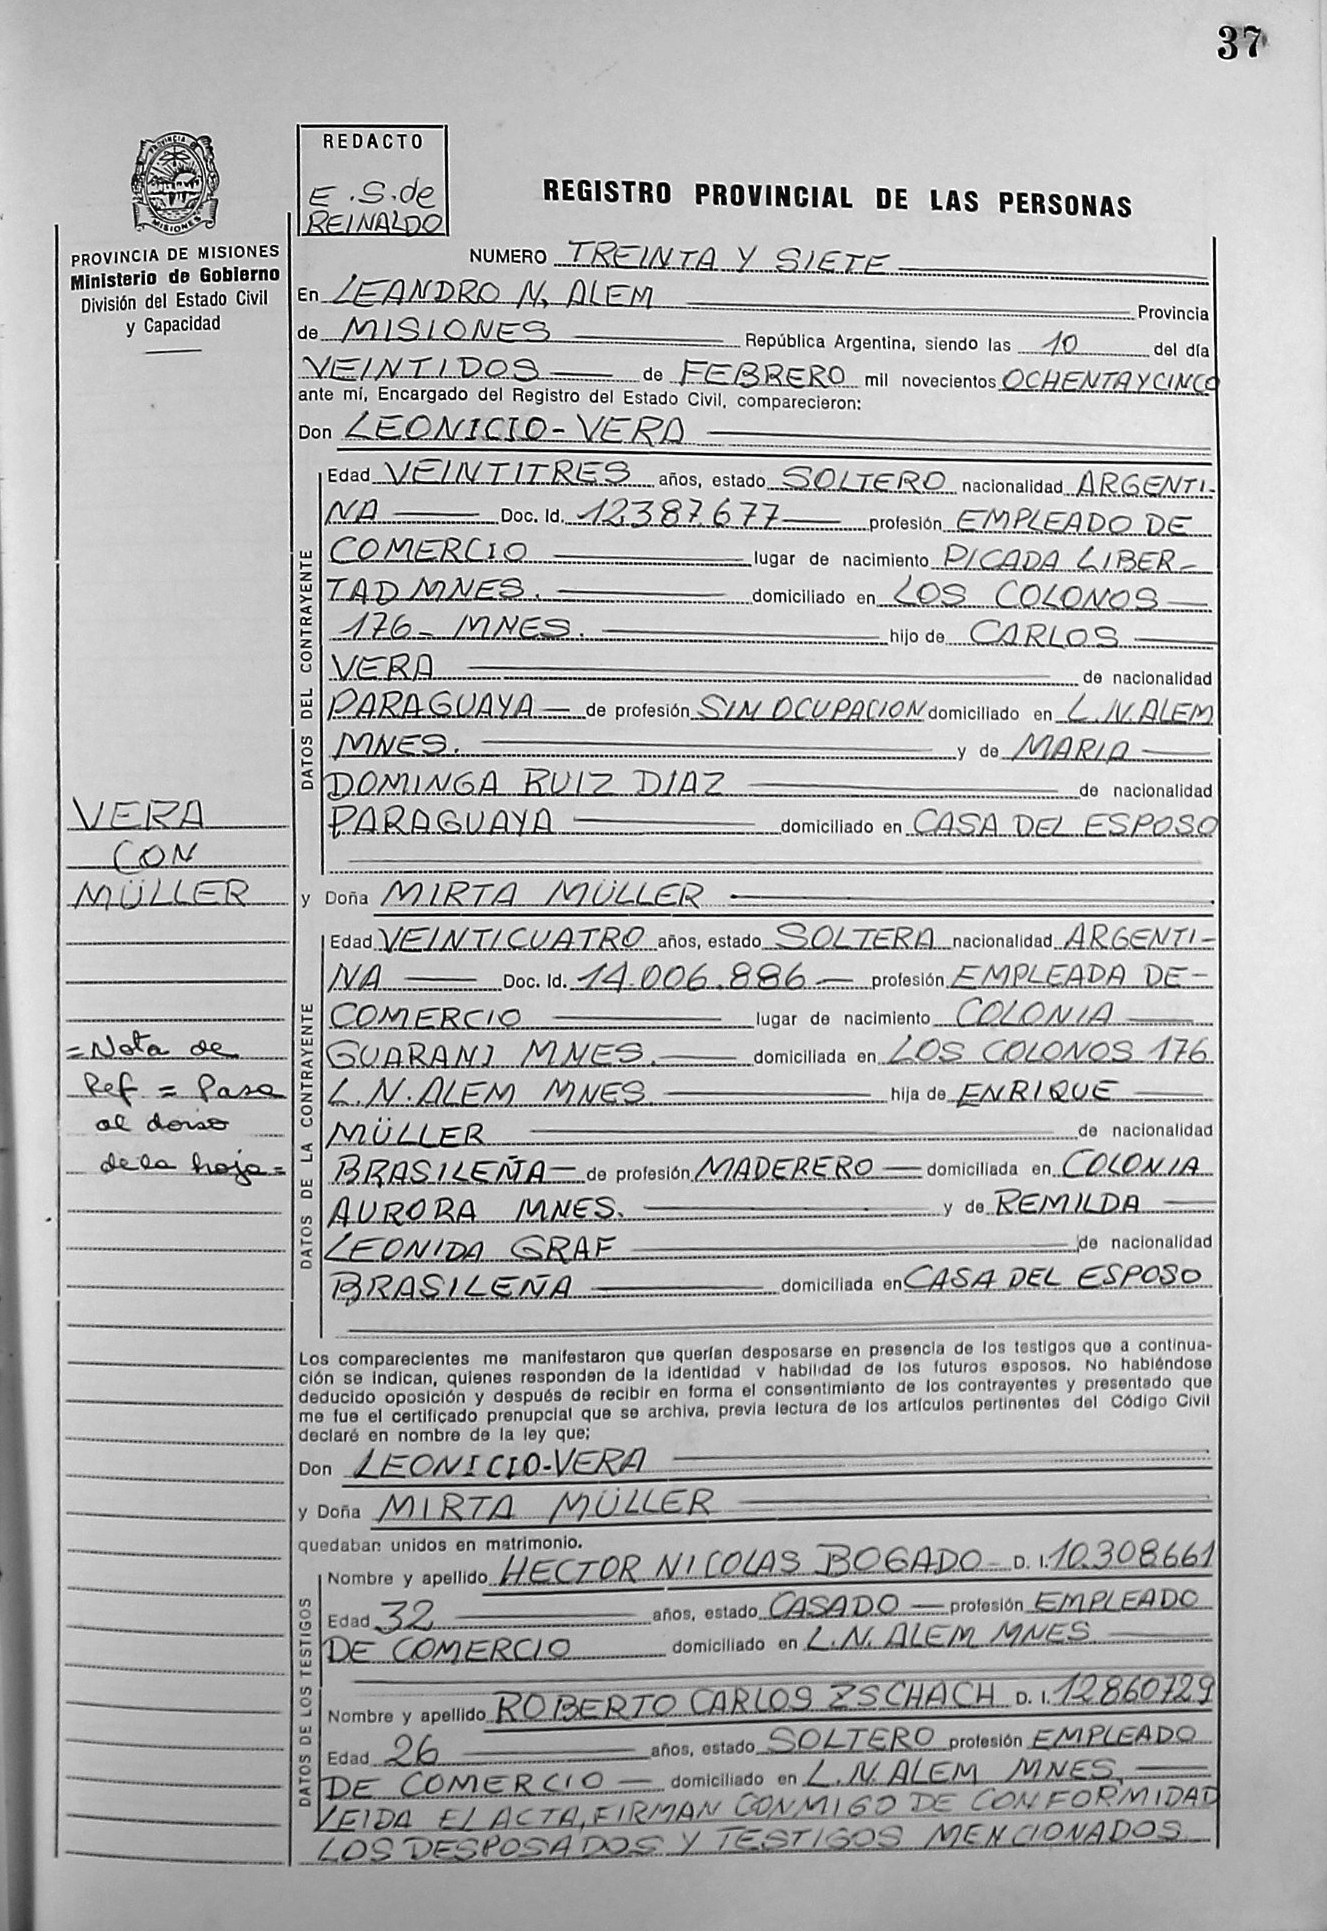 37
REDACTO
E.S.de
REINALDO
PROVINCIA
MISIONES
PROVINCIA DE MISIONES
Ministerio de Gobierno
División del Estado Civil
y Capacidad
REGISTRO PROVINCIAL DE LAS PERSONAS
NUMERO TREINTA Y SIETE
En LEANDRO N. ALEM Provincia
de MISIONES República Argentina, siendo las 10 del día
VEINTIDOS de FEBRERO mil novecientos OCHENTA Y CINCO
ante mí, Encargado del Registro del Estado Civil, comparecieron:
Don LEONICIO-VERA
DATOS DEL CONTRAYENTE
Edad VEINTITRES años, estado SOLTERO nacionalidad ARGENTI-
NA Doc. Id. 12.387.677 profesión EMPLEADO DE
COMERCIO lugar de nacimiento PICADA LIBER-
TAD MNES. domiciliado en LOS COLONOS
176- MNES. hijo de CARLOS
VERA de nacionalidad
PARAGUAYA de profesión SIN OCUPACION domiciliado en L.N.ALEM
MNES. y de MARIA
DOMINGA RUIZ DIAZ de nacionalidad
PARAGUAYA domiciliado en CASA DEL ESPOSO
VERA
CON
MÜLLER
y Doña MIRTA MÜLLER
DATOS DE LA CONTRAYENTE
Edad VEINTICUATRO años, estado SOLTERA nacionalidad ARGENTI-
NA Doc. Id. 14.006.886 profesión EMPLEADA DE-
COMERCIO lugar de nacimiento COLONIA
GUARANI MNES. domiciliada en LOS COLONOS 176
L.N.ALEM MNES hija de ENRIQUE
MÜLLER de nacionalidad
BRASILEÑA de profesión MADERERO domiciliada en COLONIA
AURORA MNES. y de REMILDA
LEONIDA GRAF de nacionalidad
BRASILEÑA domiciliada en CASA DEL ESPOSO
=Nota de
Ref = Pasa
al dorso
de la hoja=
Los comparecientes me manifestaron que querían desposarse en presencia de los testigos que a continua-
ción se indican, quienes responden de la identidad y habilidad de los futuros esposos. No habiéndose
deducido oposición y después de recibir en forma el consentimiento de los contrayentes y presentado que
me fue el certificado prenupcial que se archiva, previa lectura de los artículos pertinentes del Código Civil
declaré en nombre de la ley que:
Don LEONICIO-VERA
y Doña MIRTA MÜLLER
quedaban unidos en matrimonio.
DATOS DE LOS TESTIGOS
Nombre y apellido HECTOR NICOLAS BOGADO- D. I. 10.308661
Edad 32 años, estado CASADO profesión EMPLEADO
DE COMERCIO domiciliado en L.N. ALEM MNES
Nombre y apellido ROBERTO CARLOS ZSCHACH D. I. 12860729
Edad 26 años, estado SOLTERO profesión EMPLEADO
DE COMERCIO domiciliado en L.N. ALEM MNES,
LEIDA EL ACTA, FIRMAN CONMIGO DE CONFORMIDAD
LOS DESPOSADOS Y TESTIGOS MENCIONADOS